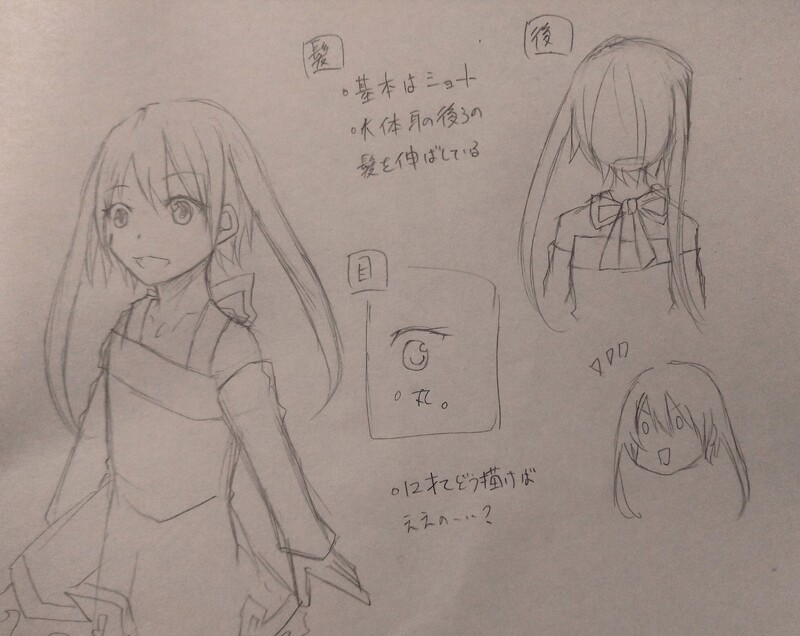 髪
○基本はショート
○大体耳の後ろの
髪を伸ばしている
後
目
○丸。
○12才てどう描けば
ええの……?